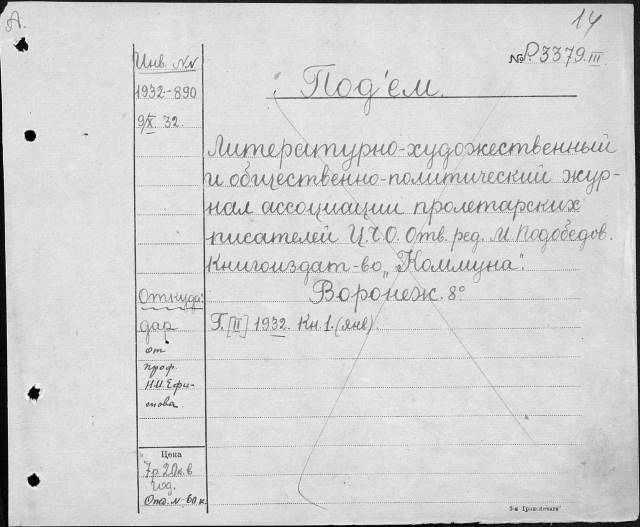 А.
14
№ Р. 3379.III
Инв. №№
1932-890
9/X 32.
Под'ем.
Литературно-художественный
и общественно-политический жур-
нал ассоциации пролетарских
писателей Ц.Ч.О. Отв. ред. М. Подобедов.
Книгоиздат-во „Коммуна".
Воронеж. 8°
Г. [II] 1932. Кн. 1. (янв).
Откуда:
дар
от
проф.
Н.И. Ефи-
мова.
Цена
7р. 20к. в
год.
Отд. № 60 к.